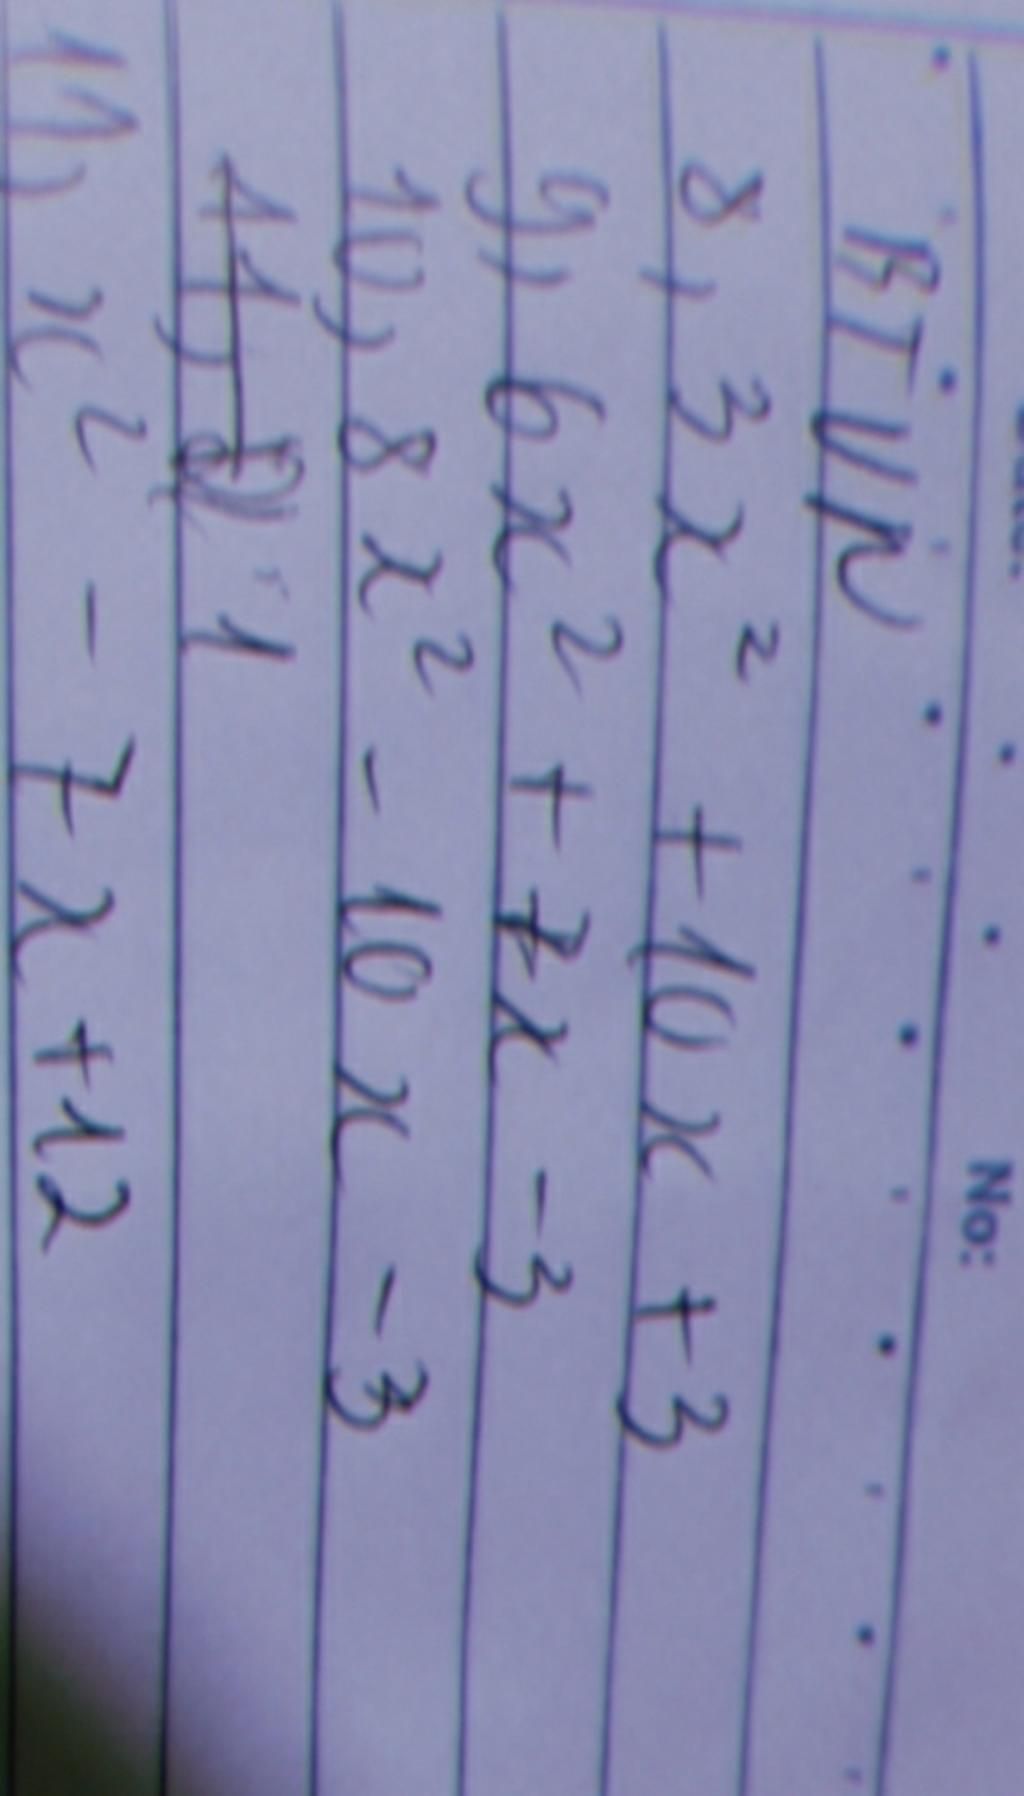 No:
BTVN
8, 3x² + 10x + 3
9, 6x² + 7x - 3
10, 8x² - 10x - 3
11, x² - 7x + 12